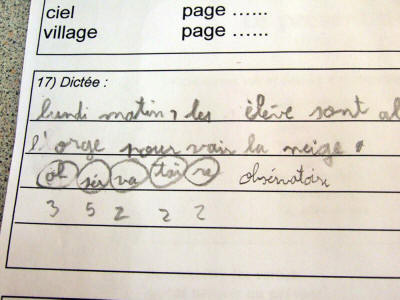 ciel page ......
village page ......
17) Dictée :
lundi matin, les élève sont al
l'orge pour vair la neige.
ob sér va toi re obsérvatoire
3 5 2 2 2